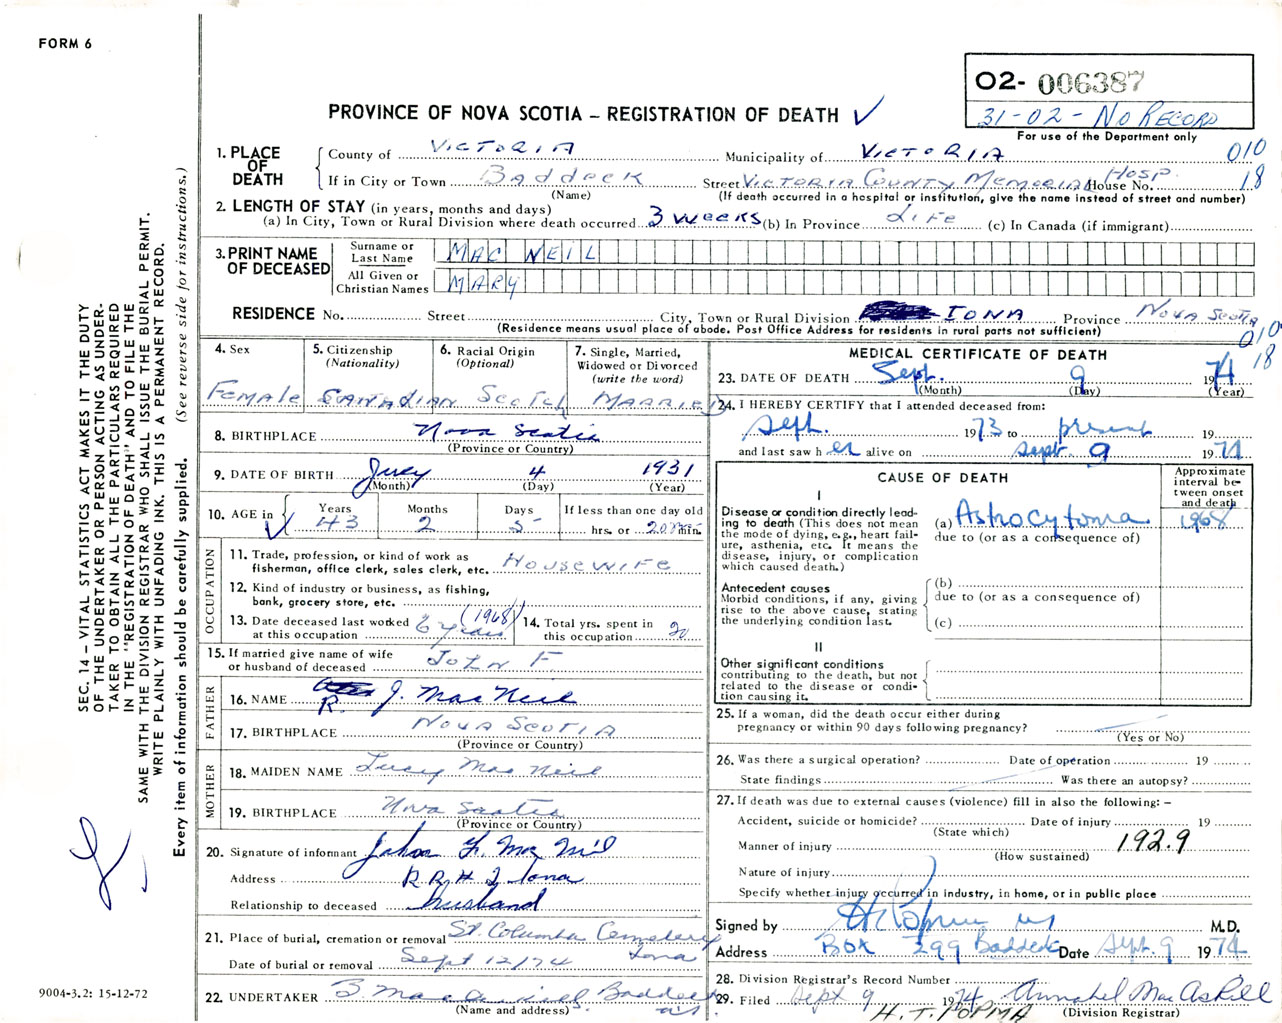 FORM 6
O2- 006387
31-02-No Record
For use of the Department only
PROVINCE OF NOVA SCOTIA – REGISTRATION OF DEATH ✓
1. PLACE OF DEATH
County of Victoria Municipality of Victoria 010
If in City or Town Baddeck Street Victoria County Memorial Hosp. House No. 18
(Name) (If death occurred in a hospital or institution, give the name instead of street and number)
2. LENGTH OF STAY (in years, months and days)
(a) In City, Town or Rural Division where death occurred 3 weeks (b) In Province Life (c) In Canada (if immigrant)
3. PRINT NAME OF DECEASED
Surname or Last Name MAC NEIL
All Given or Christian Names MARY
RESIDENCE No. Street City, Town or Rural Division Iona Province Nova Scotia
(Residence means usual place of abode. Post Office Address for residents in rural parts not sufficient)
010
18
4. Sex
Female
5. Citizenship
(Nationality)
Canadian
6. Racial Origin
(Optional)
Scotch
7. Single, Married,
Widowed or Divorced
(write the word)
Married
8. BIRTHPLACE Nova Scotia
(Province or Country)
9. DATE OF BIRTH July 4 1931
(Month) (Day) (Year)
10. AGE in
Years Months Days If less than one day old
✓ 43 2 5 hrs. or 20 min.
OCCUPATION
11. Trade, profession, or kind of work as
fisherman, office clerk, sales clerk, etc. Housewife
12. Kind of industry or business, as fishing,
bank, grocery store, etc.
13. Date deceased last worked
at this occupation 6 years (1968)
14. Total yrs. spent in
this occupation 20
15. If married give name of wife
or husband of deceased John F
FATHER
16. NAME R. J. Mac Neil
17. BIRTHPLACE Nova Scotia
(Province or Country)
MOTHER
18. MAIDEN NAME Lucy Mac Neil
19. BIRTHPLACE Nova Scotia
(Province or Country)
20. Signature of informant John F. Mac Neil
Address R R # 2 Iona
Relationship to deceased husband
21. Place of burial, cremation or removal St. Columba Cemetery
Iona
Date of burial or removal Sept 12/74
22. UNDERTAKER Baddeck
(Name and address) n.s.
MEDICAL CERTIFICATE OF DEATH
23. DATE OF DEATH Sept. 9 1974
(Month) (Day) (Year)
24. I HEREBY CERTIFY that I attended deceased from:
Sept. 1973 to present 19
and last saw her alive on Sept. 9 1974
CAUSE OF DEATH
Approximate
interval be-
tween onset
and death
I
Disease or condition directly lead-
ing to death (This does not mean
the mode of dying, e.g., heart fail-
ure, asthenia, etc. It means the
disease, injury, or complication
which caused death.)
(a) Astrocytoma 1968
due to (or as a consequence of)
Antecedent causes
Morbid conditions, if any, giving
rise to the above cause, stating
the underlying condition last.
(b)
due to (or as a consequence of)
(c)
II
Other significant conditions
contributing to the death, but not
related to the disease or condi-
tion causing it.
25. If a woman, did the death occur either during
pregnancy or within 90 days following pregnancy?
(Yes or No)
26. Was there a surgical operation? Date of operation 19
State findings Was there an autopsy?
27. If death was due to external causes (violence) fill in also the following: –
Accident, suicide or homicide? Date of injury 19
(State which)
Manner of injury 192.9
(How sustained)
Nature of injury
Specify whether injury occurred in industry, in home, or in public place
Signed by H. Popma M.D.
Address Box 299 Baddeck Date Sept. 9 1974
28. Division Registrar's Record Number
29. Filed Sept 9 1974 Annabel Mac Askill
H.T. POPMA (Division Registrar)
SEC. 14 – VITAL STATISTICS ACT MAKES IT THE DUTY
OF THE UNDERTAKER OR PERSON ACTING AS UNDER-
TAKER TO OBTAIN ALL THE PARTICULARS REQUIRED
IN THE "REGISTRATION OF DEATH" AND TO FILE THE
SAME WITH THE DIVISION REGISTRAR WHO SHALL ISSUE THE BURIAL PERMIT.
WRITE PLAINLY WITH UNFADING INK. THIS IS A PERMANENT RECORD.
Every item of information should be carefully supplied. (See reverse side for instructions.)
9004-3.2: 15-12-72